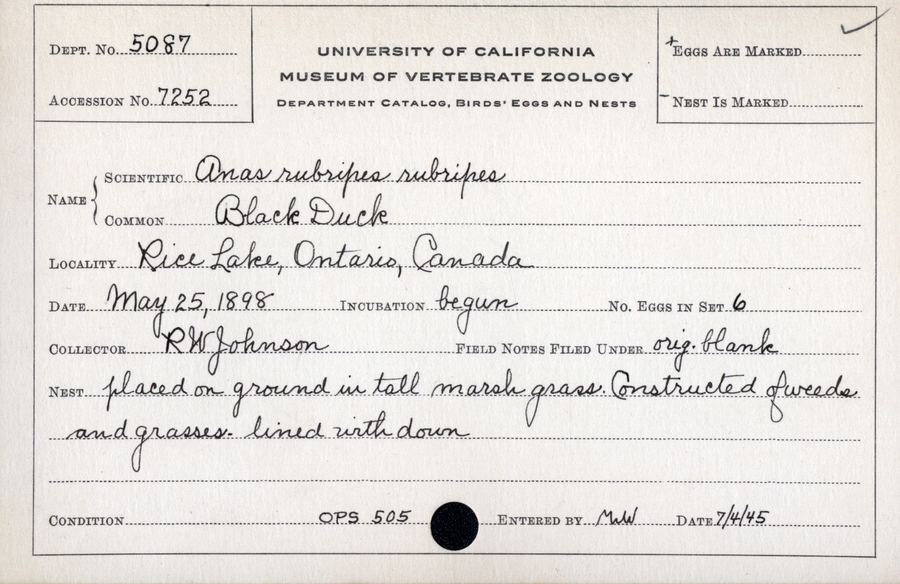 DEPT. NO. 5087
ACCESSION NO. 7252
UNIVERSITY OF CALIFORNIA
MUSEUM OF VERTEBRATE ZOOLOGY
DEPARTMENT CATALOG, BIRDS' EGGS AND NESTS
+ EGGS ARE MARKED
- NEST IS MARKED
NAME
SCIENTIFIC Anas rubripes rubripes
COMMON Black Duck
LOCALITY Rice Lake, Ontario, Canada
DATE May 25, 1898 INCUBATION begun NO. EGGS IN SET 6
COLLECTOR RW Johnson FIELD NOTES FILED UNDER orig. blank
NEST placed on ground in tall marsh grass. Constructed of weeds
and grasses - lined with down
CONDITION OPS 505 ENTERED BY MWW DATE 7/4/45